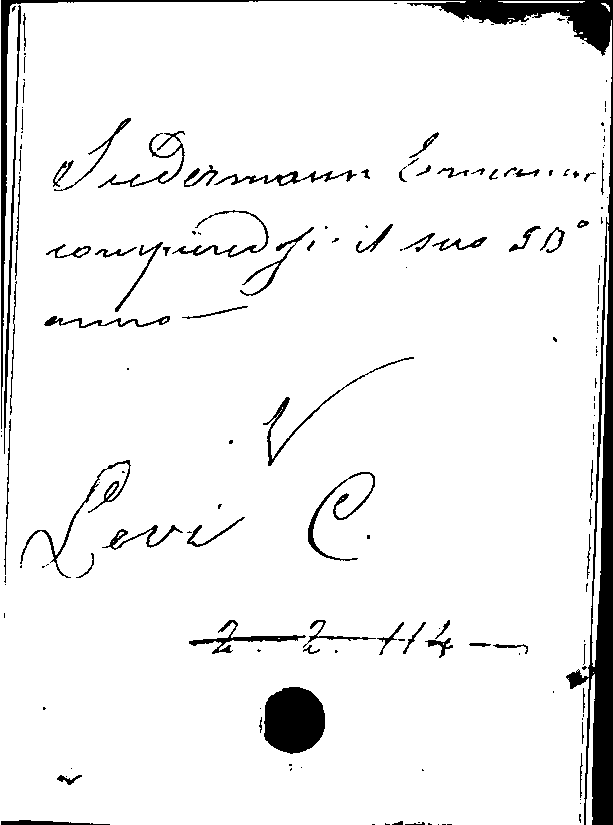 Sudermann Ermanno
compiendosi il suo 50°
anno —
V
Levi C.
2. 2. 114